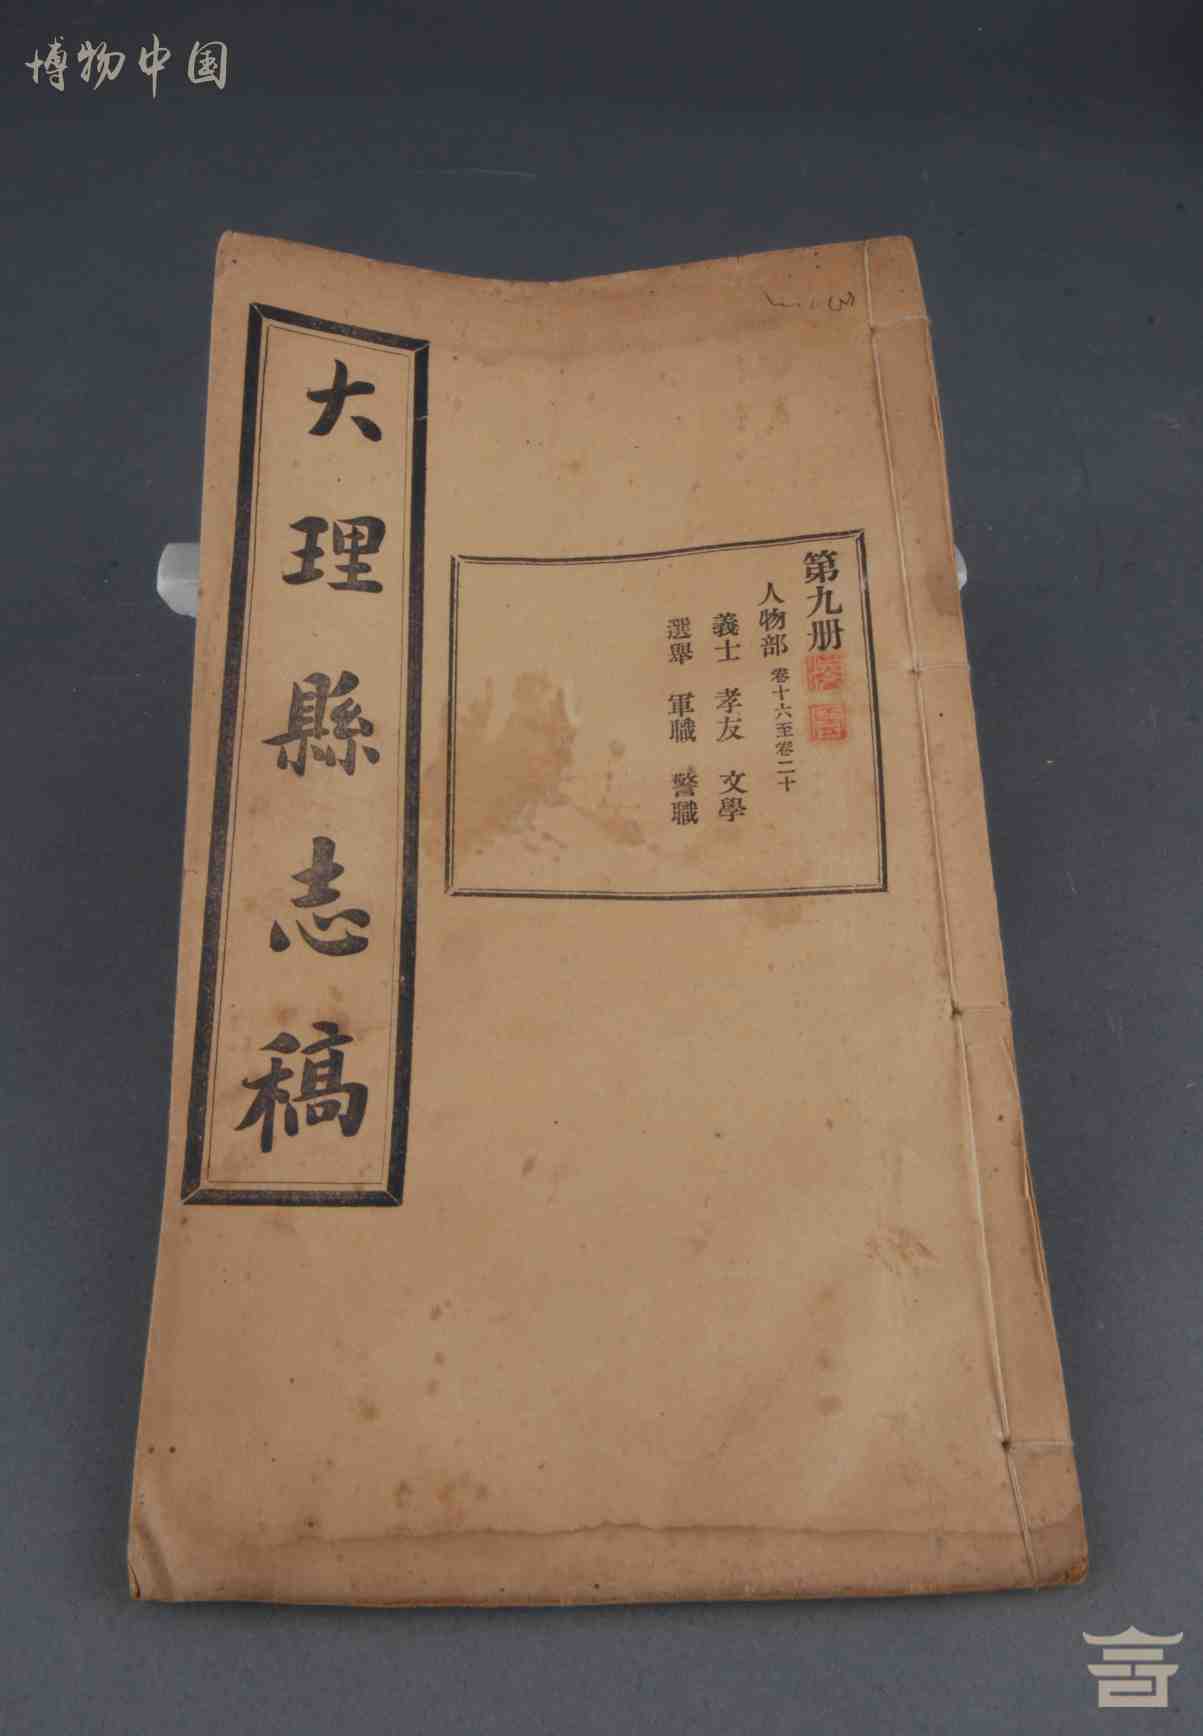 博物中国
大理縣志稿
第九册
人物部 卷十六至卷二十
義士 孝友 文學
選舉 軍職 警職